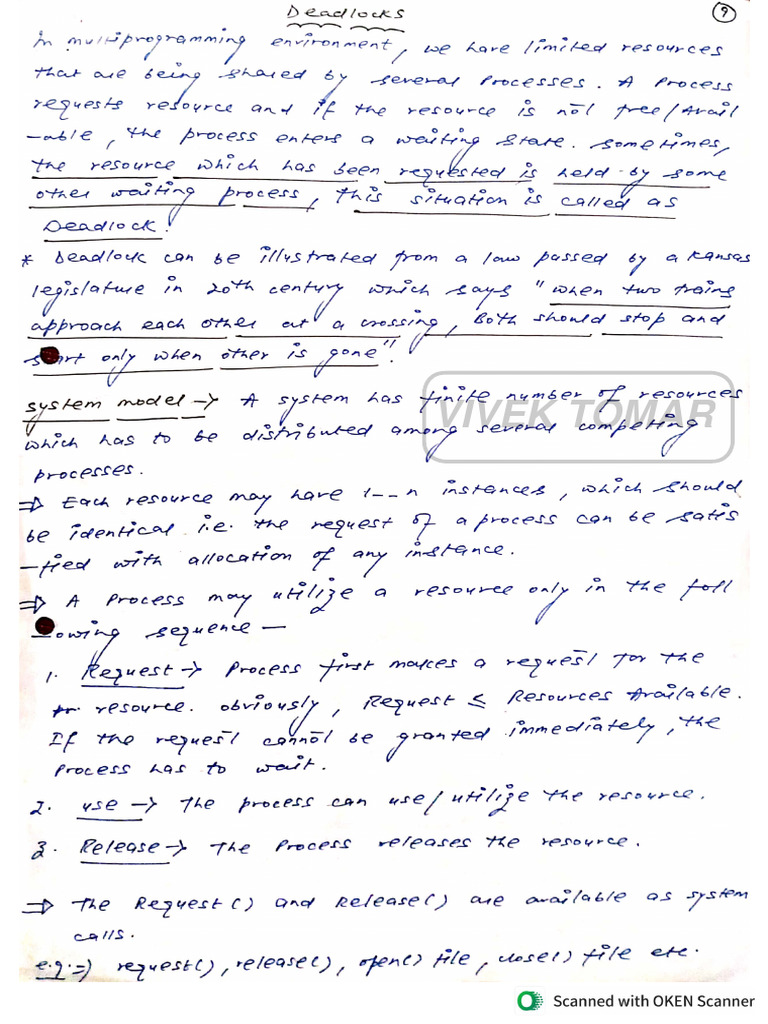 Deadlocks
9
In multiprogramming environment, we have limited resources
that are being shared by several processes. A Process
requests resource and if the resource is not free/Avail
-able, the process enters a waiting state. Sometimes,
the resource which has been requested is held by some
other waiting process, this situation is called as
Deadlock.
* Deadlock can be illustrated from a law passed by a Kansas
legislature in 20th century which says "when two trains
approach each other at a crossing, Both should stop and
start only when other is gone".
System model → A system has finite number of resources
VIVEK TOMAR
which has to be distributed among several competing
processes.
⇒ Each resource may have 1--n instances, which should
be identical i.e. the request of a process can be satis
-fied with allocation of any instance.
⇒ A Process may utilize a resource only in the foll
-owing sequence —
1. Request → Process first makes a request for the
resource. obviously, Request ≤ Resources Available.
If the request cannot be granted immediately, the
Process has to wait.
2. use → The process can use/utilize the resource.
3. Release → The Process releases the resource.
⇒ The Request() and Release() are available as system
calls.
e.g. ⇒ request(), release(), open() file, close() file etc.
Scanned with OKEN Scanner